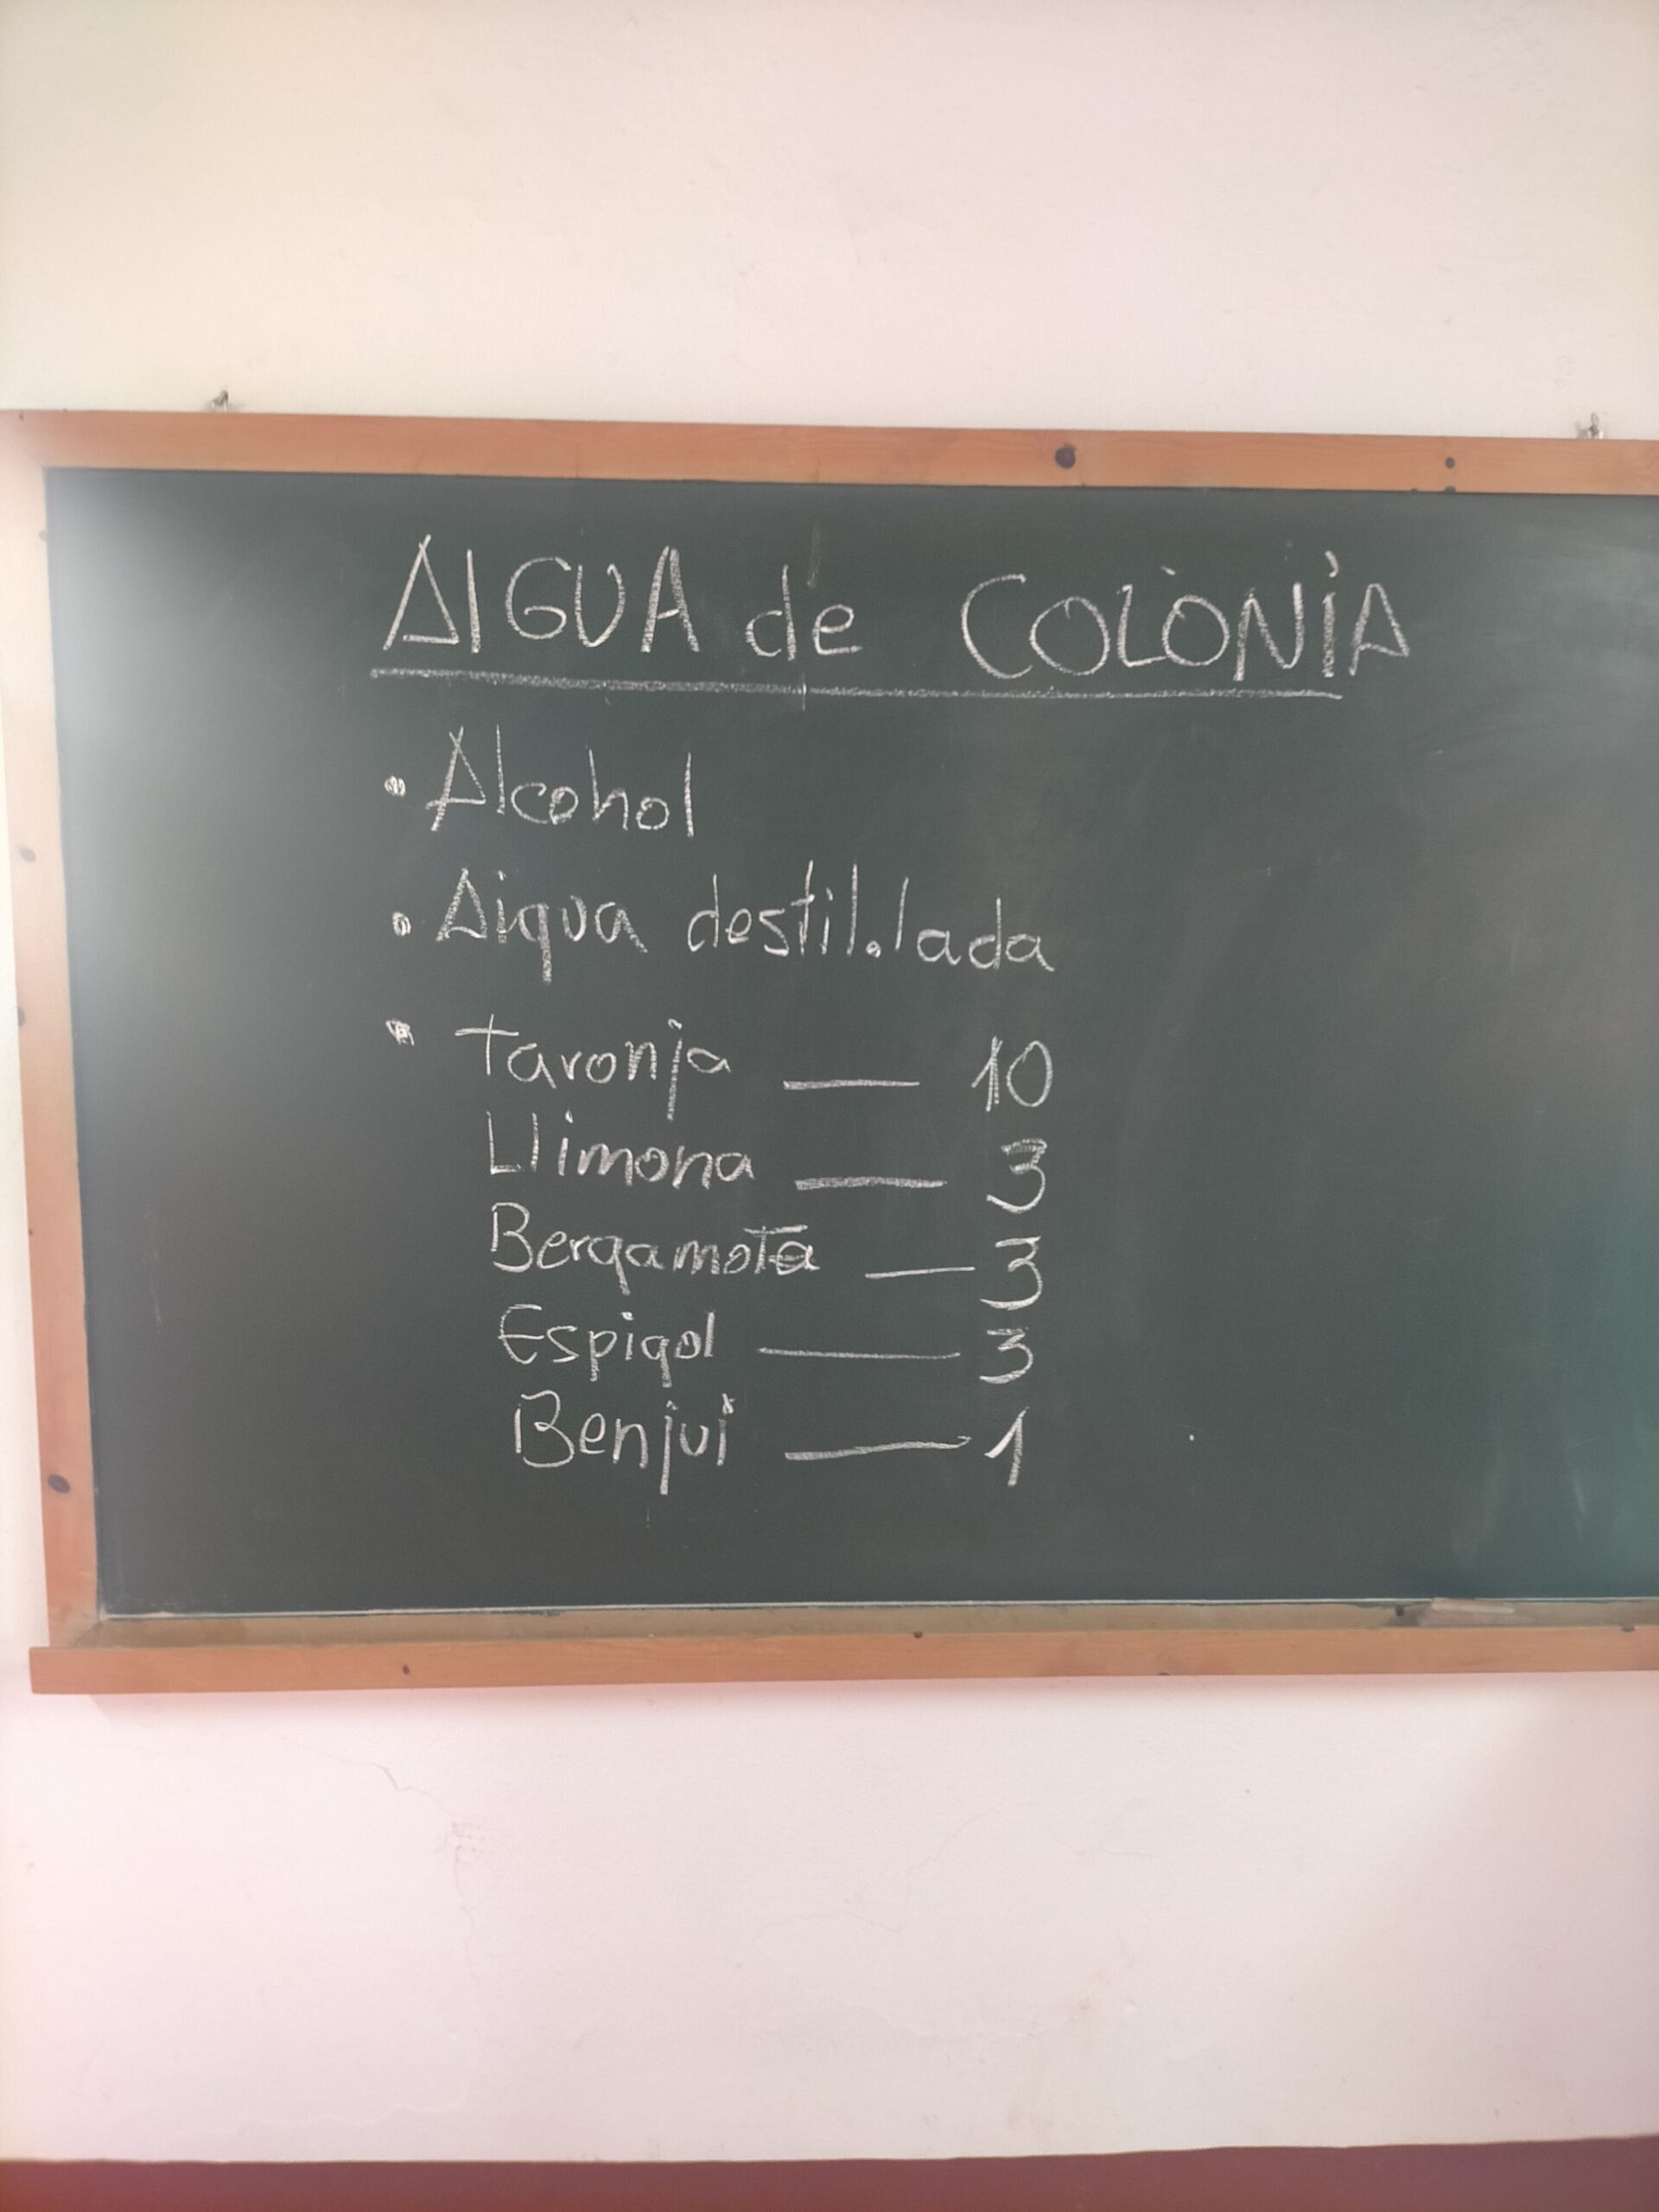 AIGUA de COLÒNIA
• Alcohol
• Aigua destil.lada
• Taronja — 10
Llimona — 3
Bergamota — 3
Espigol — 3
Benjui — 1